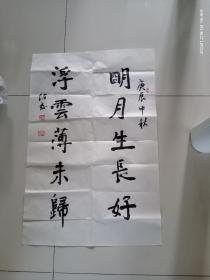 庚辰中秋
明月生長好
浮雲薄未歸